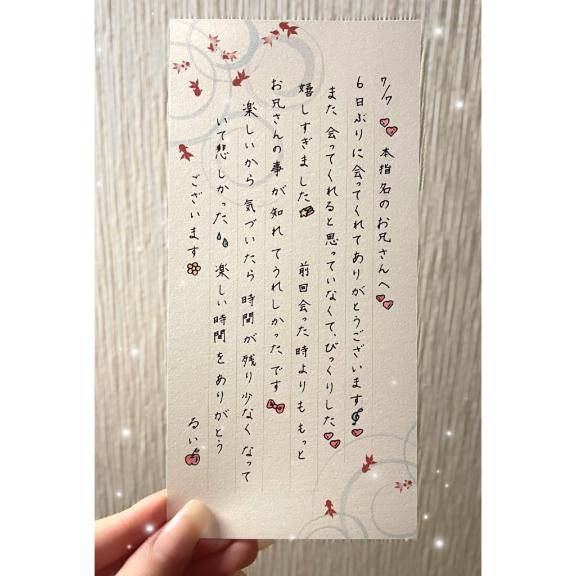 7/7 本指名のお兄さんへ
6日ぶりに会ってくれてありがとうございます
また会ってくれると思っていなくて、びっくりした
嬉しすぎました 前回会った時よりももっと
お兄さんの事が知れてうれしかったです
楽しいから気づいたら時間が残り少なくなって
いて悲しかった 楽しい時間をありがとう
ございます
るい